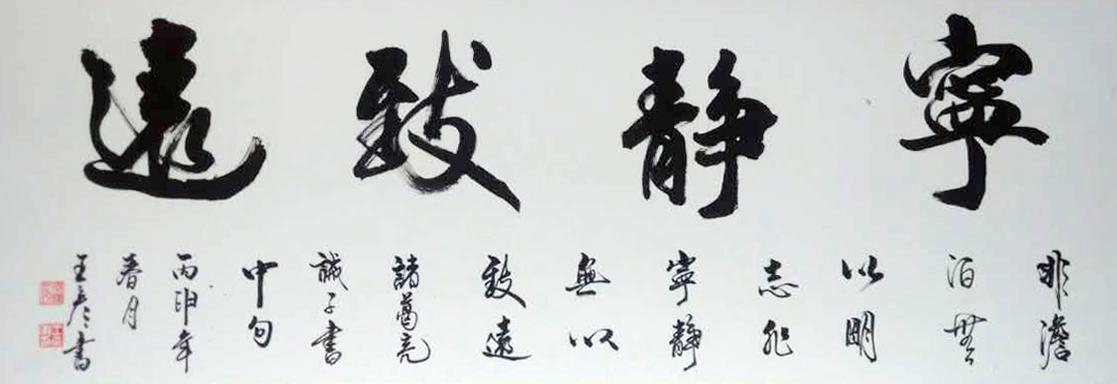 寧靜致遠
非澹
泊無
以明
志非
寧靜
無以
致遠
諸葛亮
誡子書
中句
丙申年
春月
王彥書